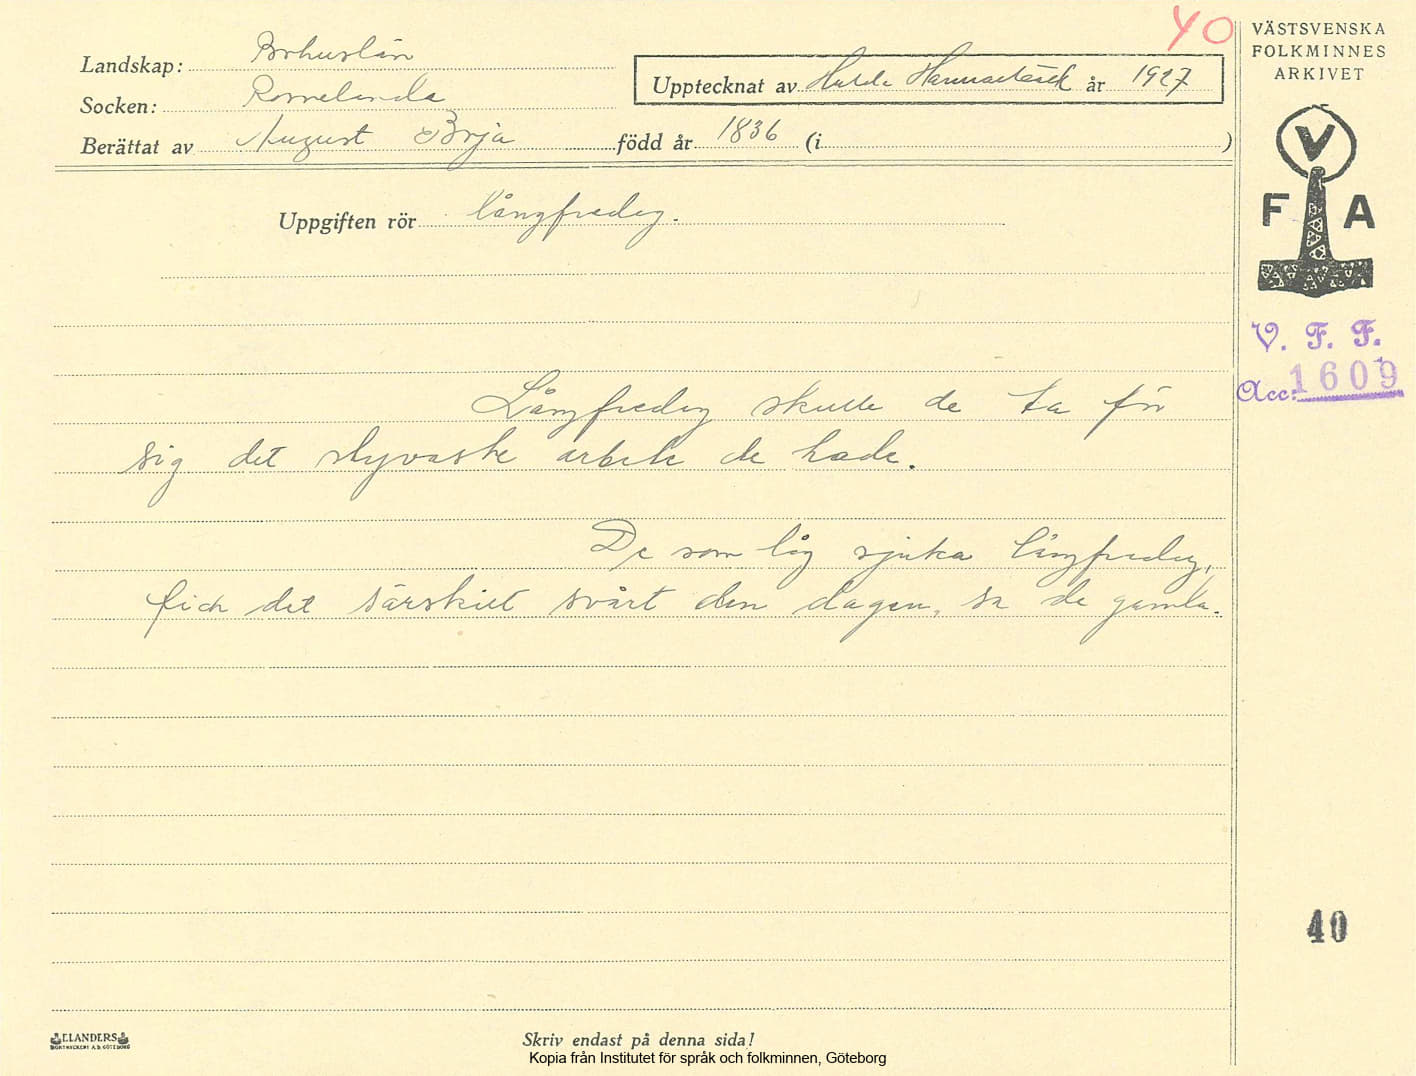 40
VÄSTSVENSKA
FOLKMINNES
ARKIVET
Landskap: Bohuslän
Upptecknat av Hulda Hammarbäck år 1927
Socken: Romelanda
Berättat av August Börja född år 1836 (i )
V
F A
Uppgiften rör långfredag.
V. F. F.
Acc: 1609
Långfredag skulle de ta för
sig det styvaste arbete de hade.
De som låg sjuka långfredag,
fick det särskilt svårt den dagen, sa de gamla.
40
ELANDERS
BOKTRYCKERI A.B. GÖTEBORG
Skriv endast på denna sida!
Kopia från Institutet för språk och folkminnen, Göteborg